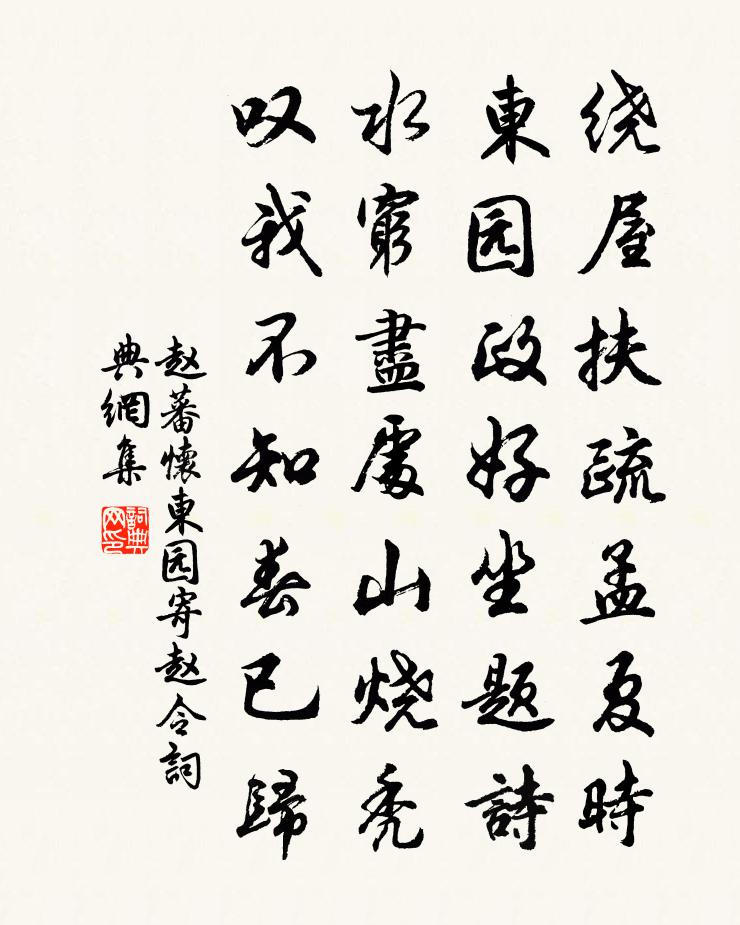 绕屋扶疏孟夏時
東园政好坐题詩
水窮盡處山烧秃
叹我不知春已歸
赵蕃懷東园寄赵令詞
典網集
詞典网印